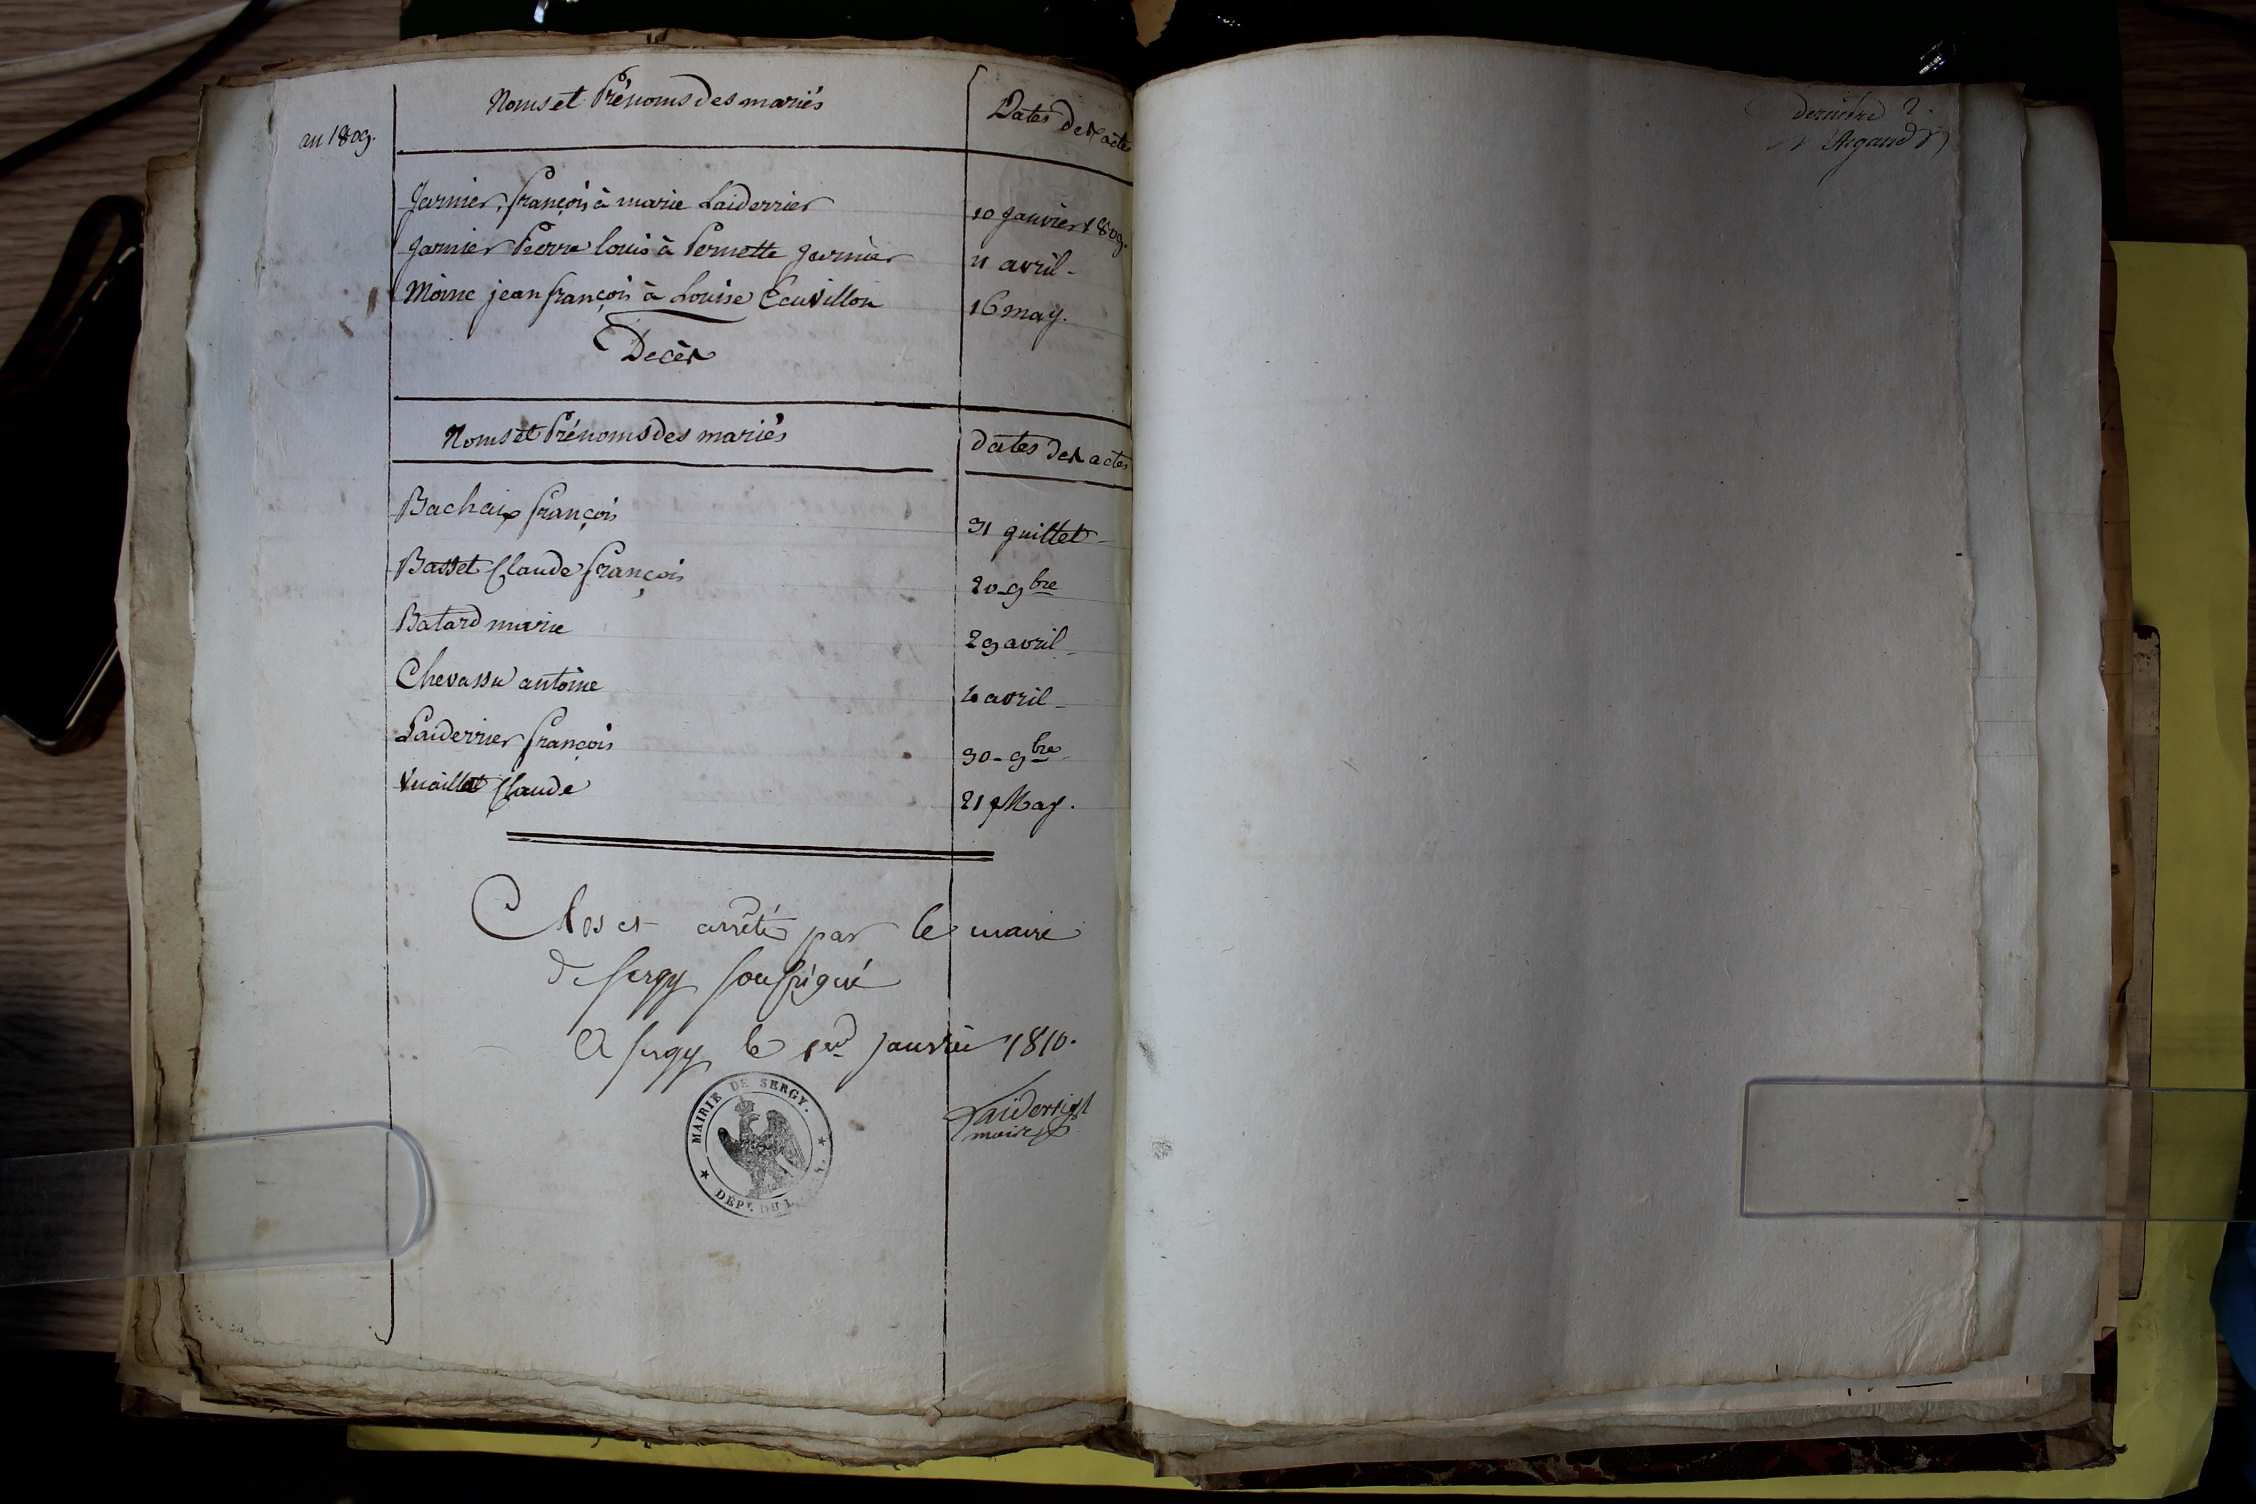 an 1809.
Noms et Prénoms des mariés
Dates des actes
Garnier, françois à marie Laiderrier
10 janvier 1809.
garnier Pierre louis à Pernette garnier
11 avril -
Moine jean françois à Louise Ecuvillon
16 may.
Decès
Noms et Prénoms des mariés
dates des actes
Bachaix françois
31 juillet -
Basset Claude françois
20 - 9bre
Batard marie
29 avril -
Chevassu antoine
4 avril -
Laiderrier françois
30 - 9bre
Vuaillat Claude
21 May.
Clos et arrêté par le maire
de Sergy soussigné
A Sergy le 1er janvier 1810.
Laiderrier
maire
MAIRIE DE SERGY.
DEPT. DU
dernière
Argaud